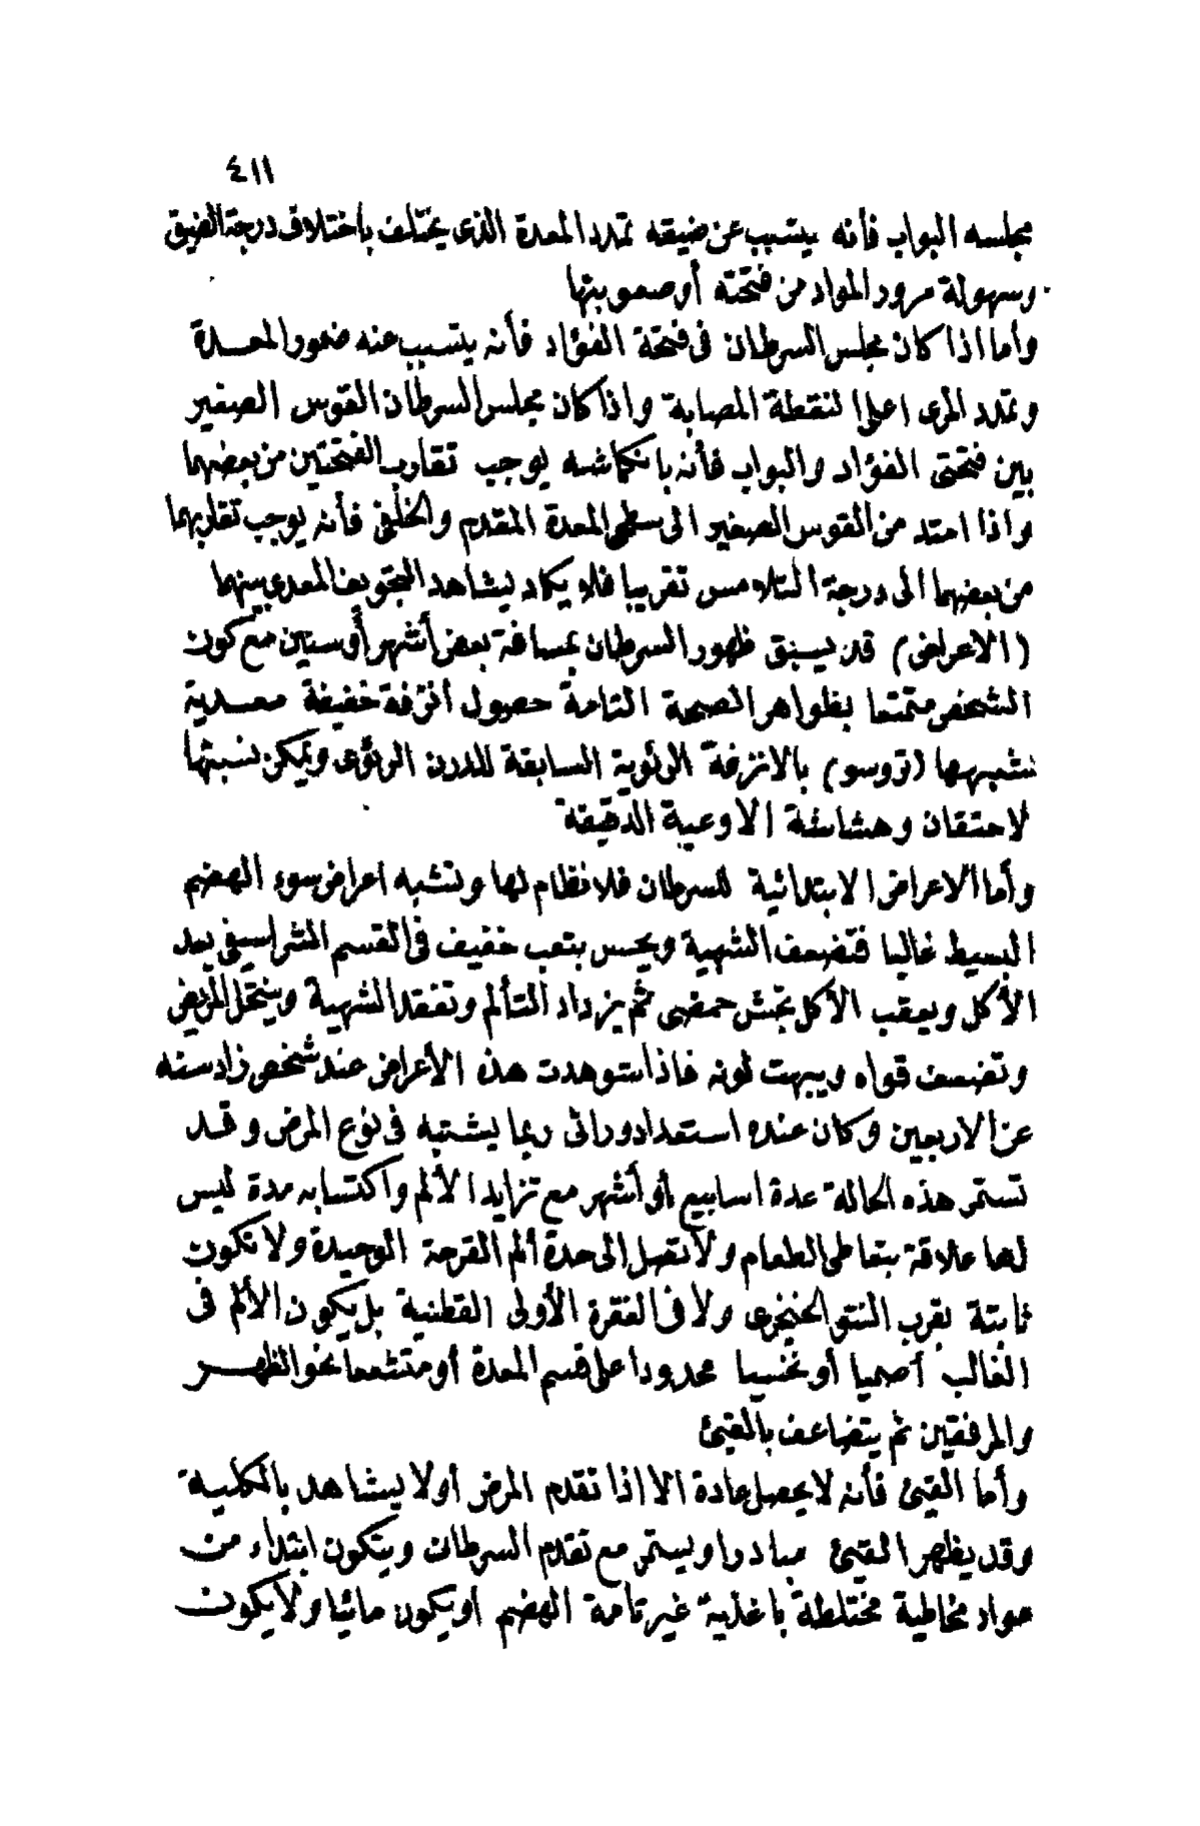 ٤١١
مجلسه البواب فأنه يتسبب عن ضيقه تمدد المعدة الذى يختلف باختلاف درجة الضيق
وسهولة مرور المواد من فتحته أوصعوبتها
وأما اذا كان مجلس السرطان فى فتحة الفؤاد فأنه يتسبب عنه ضمور المعدة
وتمدد المرى اعلى النقطة المصابة واذا كان مجلس السرطان القوس الصغير
بين فتحتى الفؤاد والبواب فأنه بانكماشه يوجب تقارب الفتحتين من بعضهما
واذا امتد من القوس الصغير الى سطحى المعدة المقدم والخلفى فأنه يوجب تقاربهما
من بعضهما الى درجة التلامس تقريبا فلا يكاد يشاهد التجويف المعدى بينهما
(الاعراض) قد يسبق ظهور السرطان بمسافة بعض أشهر أوسنين مع كون
الشخص متمتعا بظواهر الصحة التامة حصول أنزفة خفيفة معدية
شبهها (تروسو) بالانزفة الرئوية السابقة للدرن الرئوى ويمكن نسبتها
لاحتقان وهشاشة الاوعية الدقيقة
وأما الاعراض الابتدائية للسرطان فلا نظام لها وتشبه اعراض سوء الهضم
البسيط غالبا فتضعف الشهية ويحس بتعب خفيف فى القسم الشراسيفى بعد
الأكل ويعقب الاكل تجش حمضى ثم يزداد التألم وتفقد الشهية وينحل المريض
وتضعف قواه ويبهت لونه فاذا شوهدت هذه الأعراض عند شخص زاد سنه
عن الاربعين وكان عنده استعداد وراثى ربما يشتبه فى نوع المرض وقد
تستمر هذه الحالة عدة اسابيع أو أشهر مع تزايد الألم واكتسابه مدة ليس
لها علاقة بتعاطى الطعام ولا تصل الى حدة ألم القرحة الوحيدة ولا تكون
ثابتة بقرب النتو الخنجرى ولا فى الفقرة الأولى القطنية بل يكون الألم فى
الغالب أصميا أو نخسيا محدودا على قسم المعدة أو متشععا نحو الظهر
والمرفقين ثم يتضاعف بالقيئ
وأما القيئ فأنه لا يحصل عادة الا اذا تقدم المرض أولا يشاهد بالكلية
وقد يظهر القيئ مبادرا ويستمر مع تقدم السرطان ويتكون ابتداء من
مواد مخاطية مختلطة باغذية غير تامة الهضم أو يكون مائيا ولا يكون